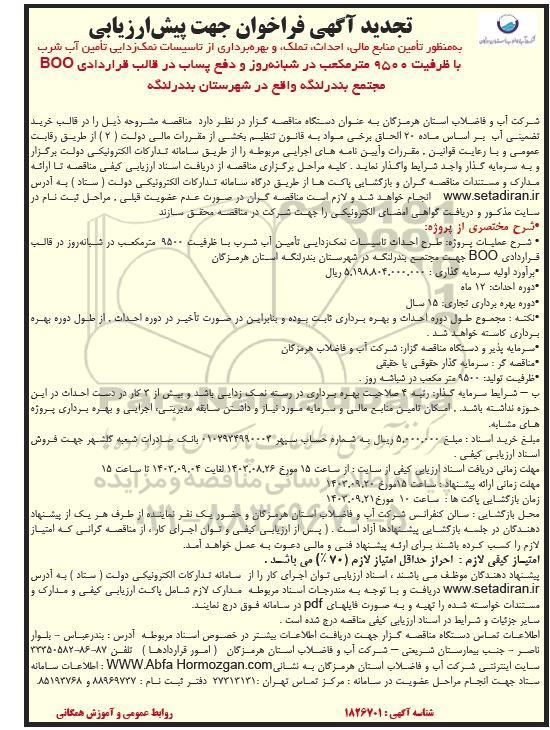 تجدید آگهی فراخوان جهت پیش‌ارزیابی
به‌منظور تأمین منابع مالی، احداث، تملک، و بهره‌برداری از تاسیسات نمک‌زدایی تأمین آب شرب
با ظرفیت ۹۵۰۰ مترمکعب در شبانه‌روز و دفع پساب در قالب قراردادی BOO
مجتمع بندرلنگه واقع در شهرستان بندرلنگه
شرکت آب و فاضلاب استان هرمزگان به عنوان دستگاه مناقصه گزار در نظر دارد مناقصه مشروحه ذیل را در قالب خرید
تضمینی آب بر اساس ماده ۲۰ الحاق برخی مواد به قانون تنظیم بخشی از مقررات مالی دولت ( ۲ ) از طریق رقابت
عمومی و با رعایت قوانین ، مقررات وآیین نامه های اجرایی مربوطه را از طریق سامانه تدارکات الکترونیکی دولت برگزار
و به سرمایه گذار واجد شرایط واگذار نماید . کلیه مراحل برگزاری مناقصه از دریافت اسناد ارزیابی کیفی مناقصه تا ارائه
مدارک و مستندات مناقصه گران و بازگشایی پاکت ها از طریق درگاه سامانه تدارکات الکترونیکی دولت ( ستاد ) به آدرس
www.setadiran.ir انجام خواهد شد و لازم است مناقصه گران در صورت عدم عضویت قبلی ، مراحل ثبت نام در
سایت مذکور و دریافت گواهی امضای الکترونیکی را جهت شرکت در مناقصه محقق سازند
•شرح مختصری از پروژه:
• شرح عملیات پروژه: طرح احداث تاسیسات نمک‌زدایی تأمین آب شرب با ظرفیت ۹۵۰۰ مترمکعب در شبانه‌روز در قالب
قراردادی BOO جهت مجتمع بندرلنگه در شهرستان بندرلنگه استان هرمزگان
•برآورد اولیه سرمایه گذاری : ۵،۱۹۸،۸۰۴،۰۰۰،۰۰۰ ریال
•دوره احداث: ۱۲ ماه
•دوره بهره برداری تجاری: ۱۵ سال
•نکته : مجموع طول دوره احداث و بهره برداری ثابت بوده و بنابراین در صورت تأخیر در دوره احداث ، از طول دوره بهره
برداری کاسته خواهد شد .
•سرمایه پذیر و دستگاه مناقصه گزار: شرکت آب و فاضلاب هرمزگان
•مناقصه گر : سرمایه گذار حقوقی یا حقیقی
•ظرفیت تولید: ۹۵۰۰ متر مکعب در شبانه روز .
ب – شرایط سرمایه گذار: رتبه ۴ صلاحیت بهره برداری در رسته نمک زدایی باشد و بیش از ۳ کار در دست احداث در این
حوزه نداشته باشد . امکان تامین منابع مالی و سرمایه مورد نیاز و داشتن سابقه مدیریتی، اجرایی و بهره برداری پروژه
های مشابه.
مبلغ خرید اسناد : مبلغ ۵،۰۰۰،۰۰۰ ریال به شماره حساب سپهر ۰۱۰۲۹۳۴۹۹۰۰۰۳ بانک صادرات شعبه گلشهر جهت فروش
اسناد ارزیابی کیفی .
مهلت زمانی دریافت اسناد ارزیابی کیفی از سایت : از ساعت ۱۵ مورخ ۱۴۰۳،۰۸،۲۶ لغایت ۱۴۰۳،۰۹،۰۴ تا ساعت ۱۵
مهلت زمانی ارائه پیشنهاد : ساعت ۱۵مورخ ۱۴۰۳،۰۹،۲۰
زمان بازگشایی پاکت ها : ساعت ۱۰ مورخ۱۴۰۳،۰۹،۲۱
محل بازگشایی : سالن کنفرانس شرکت آب و فاضلاب استان هرمزگان و حضور یک نفر نماینده از طرف هر یک از پیشنهاد
دهندگان در جلسه بازگشایی پیشنهادها آزاد است . ( پس از ارزیابی کیفی و توان اجرای کار ، از مناقصه گرانی که امتیاز
لازم را کسب کرده باشند برای ارئه پیشنهاد فنی و مالی دعوت به عمل خواهد آمد.
امتیـاز کیفی لازم : احراز حداقل امتیاز لازم (۷۰ %) می باشـد .
پیشنهاد دهندگان موظف می باشند ، اسناد ارزیابی توان اجرای کار را از سامانه تدارکات الکترونیکی دولت ( ستاد ) به آدرس
www.setadiran.ir دریافت و با توجه به مندرجات اسناد مربوطه مدارک لازم شامل پاکت ارزیابی کیفی و مدارک و
مستندات خواسته شده را تهیه و به صورت فایلهای pdf در سامانه فوق درج نمایند.
سایر جزئیات و شرایط در اسناد ارزیابی کیفی مناقصه درج شده است .
اطلاعات تماس دستگاه مناقصه گزار جهت دریافت اطلاعات بیشتر در خصوص اسناد مربوطه آدرس : بندرعباس - بلوار
ناصر - جنب بیمارستان شریعتی – شرکت آب و فاضلاب استان هرمزگان ( امور قراردادها ) تلفن ۸۷-۸۶-۳۳۳۵۰۵۸۲
سایت اینترنتی شرکت آب و فاضلاب استان هرمزگان به نشانی WWW.Abfa Hormozgan.com : اطلاعات سامانه
ستاد جهت انجام مراحل عضویت در سامانه : مرکز تماس تهران : ۲۷۳۱۳۱۳۱ دفتر ثبت نام : ۸۸۹۶۹۷۳۷ و ۸۵۱۹۳۷۶۸.
شناسه آگهی : ۱۸۲۶۷۰۱
روابط عمومی و آموزش همگانی